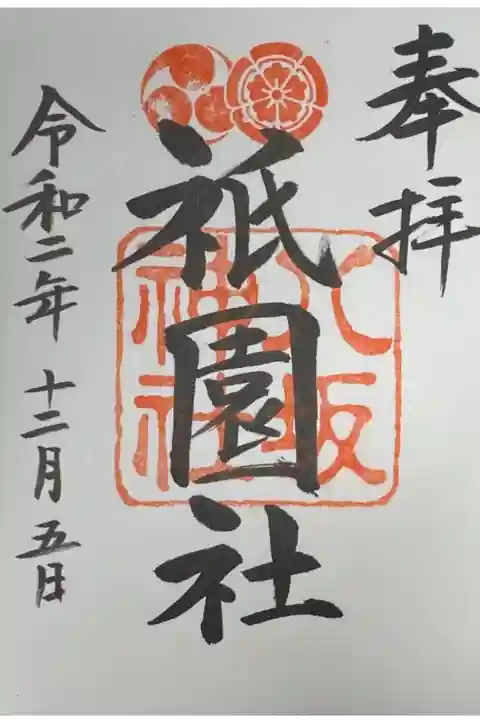 奉拝
祇園社
八坂
神社
令和二年 十二月五日